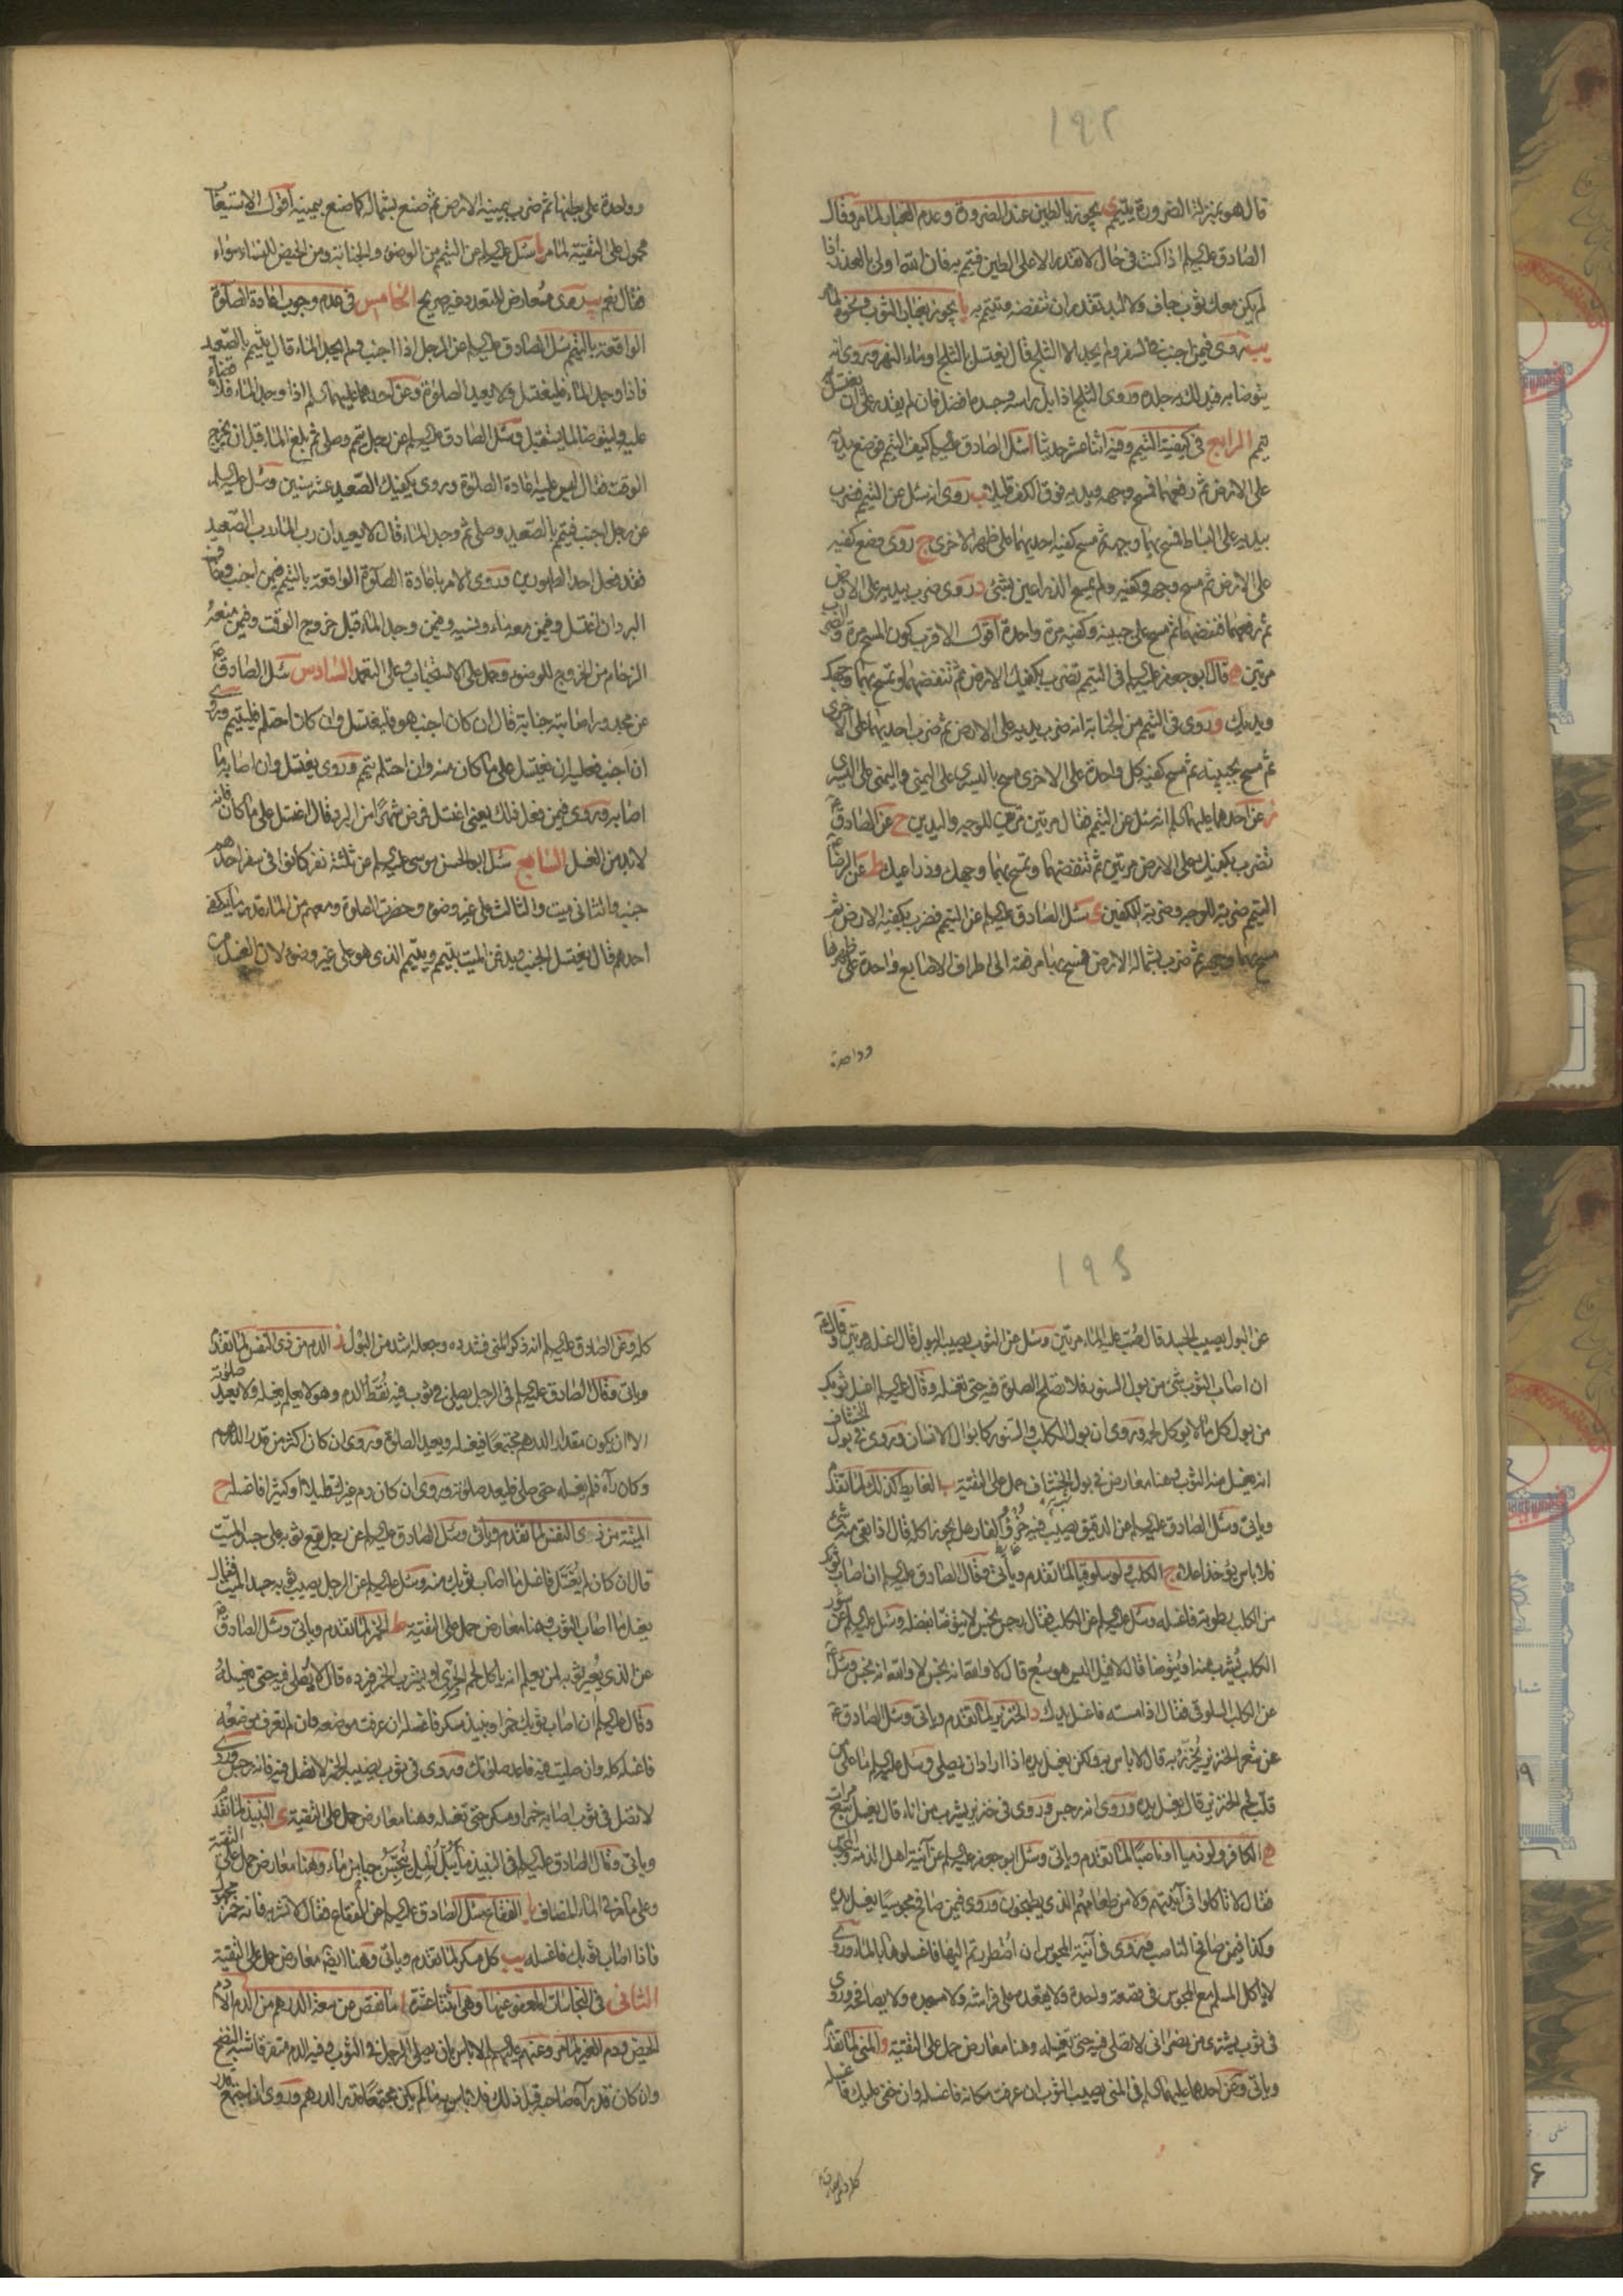 ١٩٢
قال هو بمنزلة الضرورة يتيمم ى يجوز بالطين عند الضرورة وعدم الغبار لما مر وقال
الصادق عليه السلم اذا كنت في حال لا تقدر الا على الطين فتيمم به فان الله اولى بالعذر اذا
لم يكن معك ثوب جاف ولا لبد تقدر ان تنفضه وتتيمم به يا يجوز بغبار الثوب ونحوه لما مر
يب روى فيمن اجنب في السفر ولم يجد الا الثلج قال يغتسل بالثلج او ماء النهر وروى انه
يتوضا به فيدلك به جلده وروى الثلج اذا بل راسه وجسده افضل فان لم يقدر على ان يغتسل به
تيمم الرابع في كيفية التيمم وفيه اثنا عشر حديثا ا سئل الصادق عليه السلم كيف التيمم فوضع يده
على الارض ثم رفعها فمسح وجهه ويديه فوق الكف قليلا ب روى انه سئل عن التيمم فضرب
بيديه على البساط فمسح بهما وجهه ثم مسح كفيه احديهما على ظهر الاخرى ج روى وضع كفيه
على الارض ثم مسح وجهه وكفيه ولم يمسح الذراعين بشئ د روى ضرب بيديه على الارض
ثم رفعهما فنفضهما ثم مسح على جبينه وكفيه مرة واحدة اقول الاقرب كون المسح مرة والضرب
مرتين ه قال ابو جعفر عليه السلم في التيمم تضرب بكفيك الارض ثم تنفضهما وتمسح بهما وجهك
ويديك و روى في التيمم من الجنابة انه ضرب بيديه على الارض ثم ضرب احديهما على الاخرى
ثم مسح بجبينه ثم مسح كفيه كل واحدة على الاخرى مسح باليسرى على اليمنى واليمنى على اليسرى
ز عن احدهما عليهما السلم انه سئل عن التيمم فقال مرتين مرتين للوجه واليدين ح عن الصادق ع
تضرب بكفيك على الارض مرتين ثم تنفضهما وتمسح بهما وجهك وذراعيك ط عن الرضا ع
التيمم ضربة للوجه وضربة للكفين ى سئل الصادق عليه السلم عن التيمم فضرب بكفيه الارض ثم
مسح بهما وجهه ثم ضرب بشماله الارض فمسح بها مرفقه الى اطراف الاصابع واحدة على ظهرها
وواحدة
وواحدة على بطنها ثم ضرب بيمينه الارض ثم صنع بشماله كما صنع بيمينه اقول الاستيعاب
محمول على التقية لما مر يا سئل عليه السلم عن التيمم من الوضوء والجنابة ومن الحيض للنساء سواء
فقال نعم يب روى معارض للتعدد غير صريح الخامس في عدم وجوب اعادة الصلوة
الواقعة بالتيمم سئل الصادق عليه السلم عن الرجل اذا اجنب ولم يجد الماء قال يتيمم بالصعيد
فاذا وجد الماء فليغتسل ولا يعيد الصلوة وعن احدهما عليهما السلم اذا وجد الماء فلا قضاء
عليه وليتوضا لما يستقبل وسئل الصادق عليه السلم عن رجل تيمم وصلى ثم بلغ الماء قبل ان يخرج
الوقت فقال ليس عليه اعادة الصلوة وروى يكفيك الصعيد عشر سنين وسئل عليه السلم
عن رجل اجنب فتيمم بالصعيد وصلى ثم وجد الماء قال لا يعيد ان رب الماء رب الصعيد
فقد فعل احد الطهورين وروى الامر باعادة الصلوة الواقعة بالتيمم فيمن اجنب وخاف من
البرد ان اغتسل وفيمن معه ماء ونسيه وفيمن وجد الماء قبل خروج الوقت وفيمن منعه
الزحام من الخروج للوضوء وحمل على الاستحباب وعلى التعمد السادس سئل الصادق ع
عن مجدور اصابته جنابة قال ان كان اجنب هو فليغتسل وان كان احتلم فليتيمم وروى
ان اجنب فعليه ان يغتسل على ما كان منه وان احتلم تيمم وروى يغتسل وان اصابه ما
اصابه وروى فيمن فعل ذلك يعني اغتسل فمرض شهرا من البرد قال اغتسل على ما كان فانه
لا بد من الغسل السابع سئل ابو الحسن موسى عليه السلم عن ثلثة نفر كانوا في سفر احدهم
جنب والثاني ميت والثالث على غير وضوء وحضرت الصلوة ومعهم من الماء قدر ما يكفي
احدهم قال يغتسل الجنب ويدفن الميت بتيمم ويتيمم الذي هو على غير وضوء لان الغسل من
١٩٤
عن البول يصيب الجسد قال صب عليه الماء مرتين وسئل عن الثوب يصيبه البول قال اغسله مرتين وقال ع
ان اصاب الثوب شئ من بول السنور فلا تصلح الصلوة فيه حتى تغسله وقال عليه السلم اغسل ثوبك
من بول كل ما لا يؤكل لحمه وروى ان بول الكلب والسنور كابوال الانسان وروى في بول الخشاف
انه يغسل منه الثوب وهنا معارض في بول الخشاف حمل على التقية ب الغايط كذلك لما تقدم
وياتي وسئل الصادق عليه السلم عن الدقيق يصيب فيه خرؤ الفار هل يجوز اكله قال اذا بقي منه شئ
فلا باس يؤخذ اعلاه ج الكلب ولو سلوقيا لما تقدم وياتي وقال الصادق عليه السلم ان اصاب ثوبك
من الكلب رطوبة فاغسله وسئل عليه السلم عن الكلب فقال رجس نجس لا يتوضا بفضله وسئل عليه السلم عن سؤر
الكلب يشرب منه او يتوضا قال لا قيل اليس هو سبع قال لا والله انه نجس لا والله انه نجس وسئل ع
عن الكلب السلوقي فقال اذا مسسته فاغسل يدك د الخنزير لما تقدم وياتي وسئل الصادق ع
عن شعر الخنزير يخرز به قال لا باس به ولكن يغسل يده اذا اراد ان يصلي وسئل عليه السلم ما على من
قلب لحم الخنزير قال يغسل يده وروى انه رجس وروى في خنزير يشرب من اناء قال يغسل سبع مرات
ه الكافر ولو ذميا او ناصبا لما تقدم وياتي وسئل ابو جعفر عليه السلم عن آنية اهل الذمة والمجوس
فقال لا تاكلوا في آنيتهم ولا من طعامهم الذي يطبخون وروى فيمن صافح مجوسيا يغسل يده
وكذا فيمن صافح الناصب وروى في آنية المجوس ان اضطررتم اليها فاغسلوها بالماء وروى
لا ياكل المسلم مع المجوس في قصعة واحدة ولا يقعده على فراشه ولا مسجده ولا يصافحه وروى
في ثوب يشترى من نصراني لا تصلي فيه حتى تغسله وهنا معارض حمل على التقية و المني لما تقدم
وياتي وعن احدهما عليهما السلم في المني يصيب الثوب ان عرفت مكانه فاغسله وان خفي عليك فاغسله
كله وعن الصادق
كله وعن الصادق عليه السلم انه ذكر المني فشدده وجعله اشد من البول ز الدم من ذي النفس لما تقدم
وياتي وقال الصادق عليه السلم في الرجل يصلي في ثوب فيه نقط الدم وهو لا يعلم يغسله ولا يعيد صلوته
الا ان يكون مقدار الدرهم مجتمعا فيغسله ويعيد الصلوة وروى ان كان اكثر من قدر الدرهم
وكان رآه فلم يغسله حتى صلى فليعد صلوته وروى ان كان دم غيرك قليلا او كثيرا فاغسله ح
الميتة من ذي النفس لما تقدم وياتي وسئل الصادق عليه السلم عن رجل يقع ثوبه على جسد الميت
قال ان كان لم يغسل فاغسل ما اصاب ثوبك منه وسئل عليه السلم عن الرجل يصيب ثوبه جسد الميت فقال
يغسل ما اصاب الثوب وهنا معارض حمل على التقية ط الخمر لما تقدم وياتي وسئل الصادق ع
عن الذي يعير ثوبه لمن يعلم انه ياكل لحم الجري او يشرب الخمر فيرده قال لا يصلي فيه حتى يغسله
وقال عليه السلم ان اصاب ثوبك خمر او نبيذ مسكر فاغسله ان عرفت موضعه وان لم تعرف موضعه
فاغسله كله وان صليت فيه فاعد صلوتك وروى في ثوب يصيبه الخمر لا تصل فيه فانه رجس وروى
لا تصل في ثوب اصابه خمر او مسكر حتى تغسله وهنا معارض حمل على التقية ى النبيذ لما تقدم
وياتي وقال الصادق عليه السلم في النبيذ ما يبل الميل ينجس حبا من ماء وهنا معارض حمل على التقية
وعلى ما مر في الماء المضاف يا الفقاع سئل الصادق عليه السلم عن الفقاع فقال لا تشربه فانه خمر مجهول
فاذا اصاب ثوبك فاغسله يب كل مسكر لما تقدم وياتي وهنا ايضا معارض حمل على التقية
الثاني في النجاسات المعفو عنها وهي اثنتا عشرة ا ما نقص عن سعة الدرهم من الدم الا دم
الحيض ودم الغير لما مر وعنهم عليهم السلم لا باس بان يصلي الرجل في الثوب وفيه الدم متفرقا شبه النضح
وان كان قد رآه صاحبه قبل ذلك فلا باس به ما لم يكن مجتمعا قدر الدرهم وروى ان اجتمع قدر